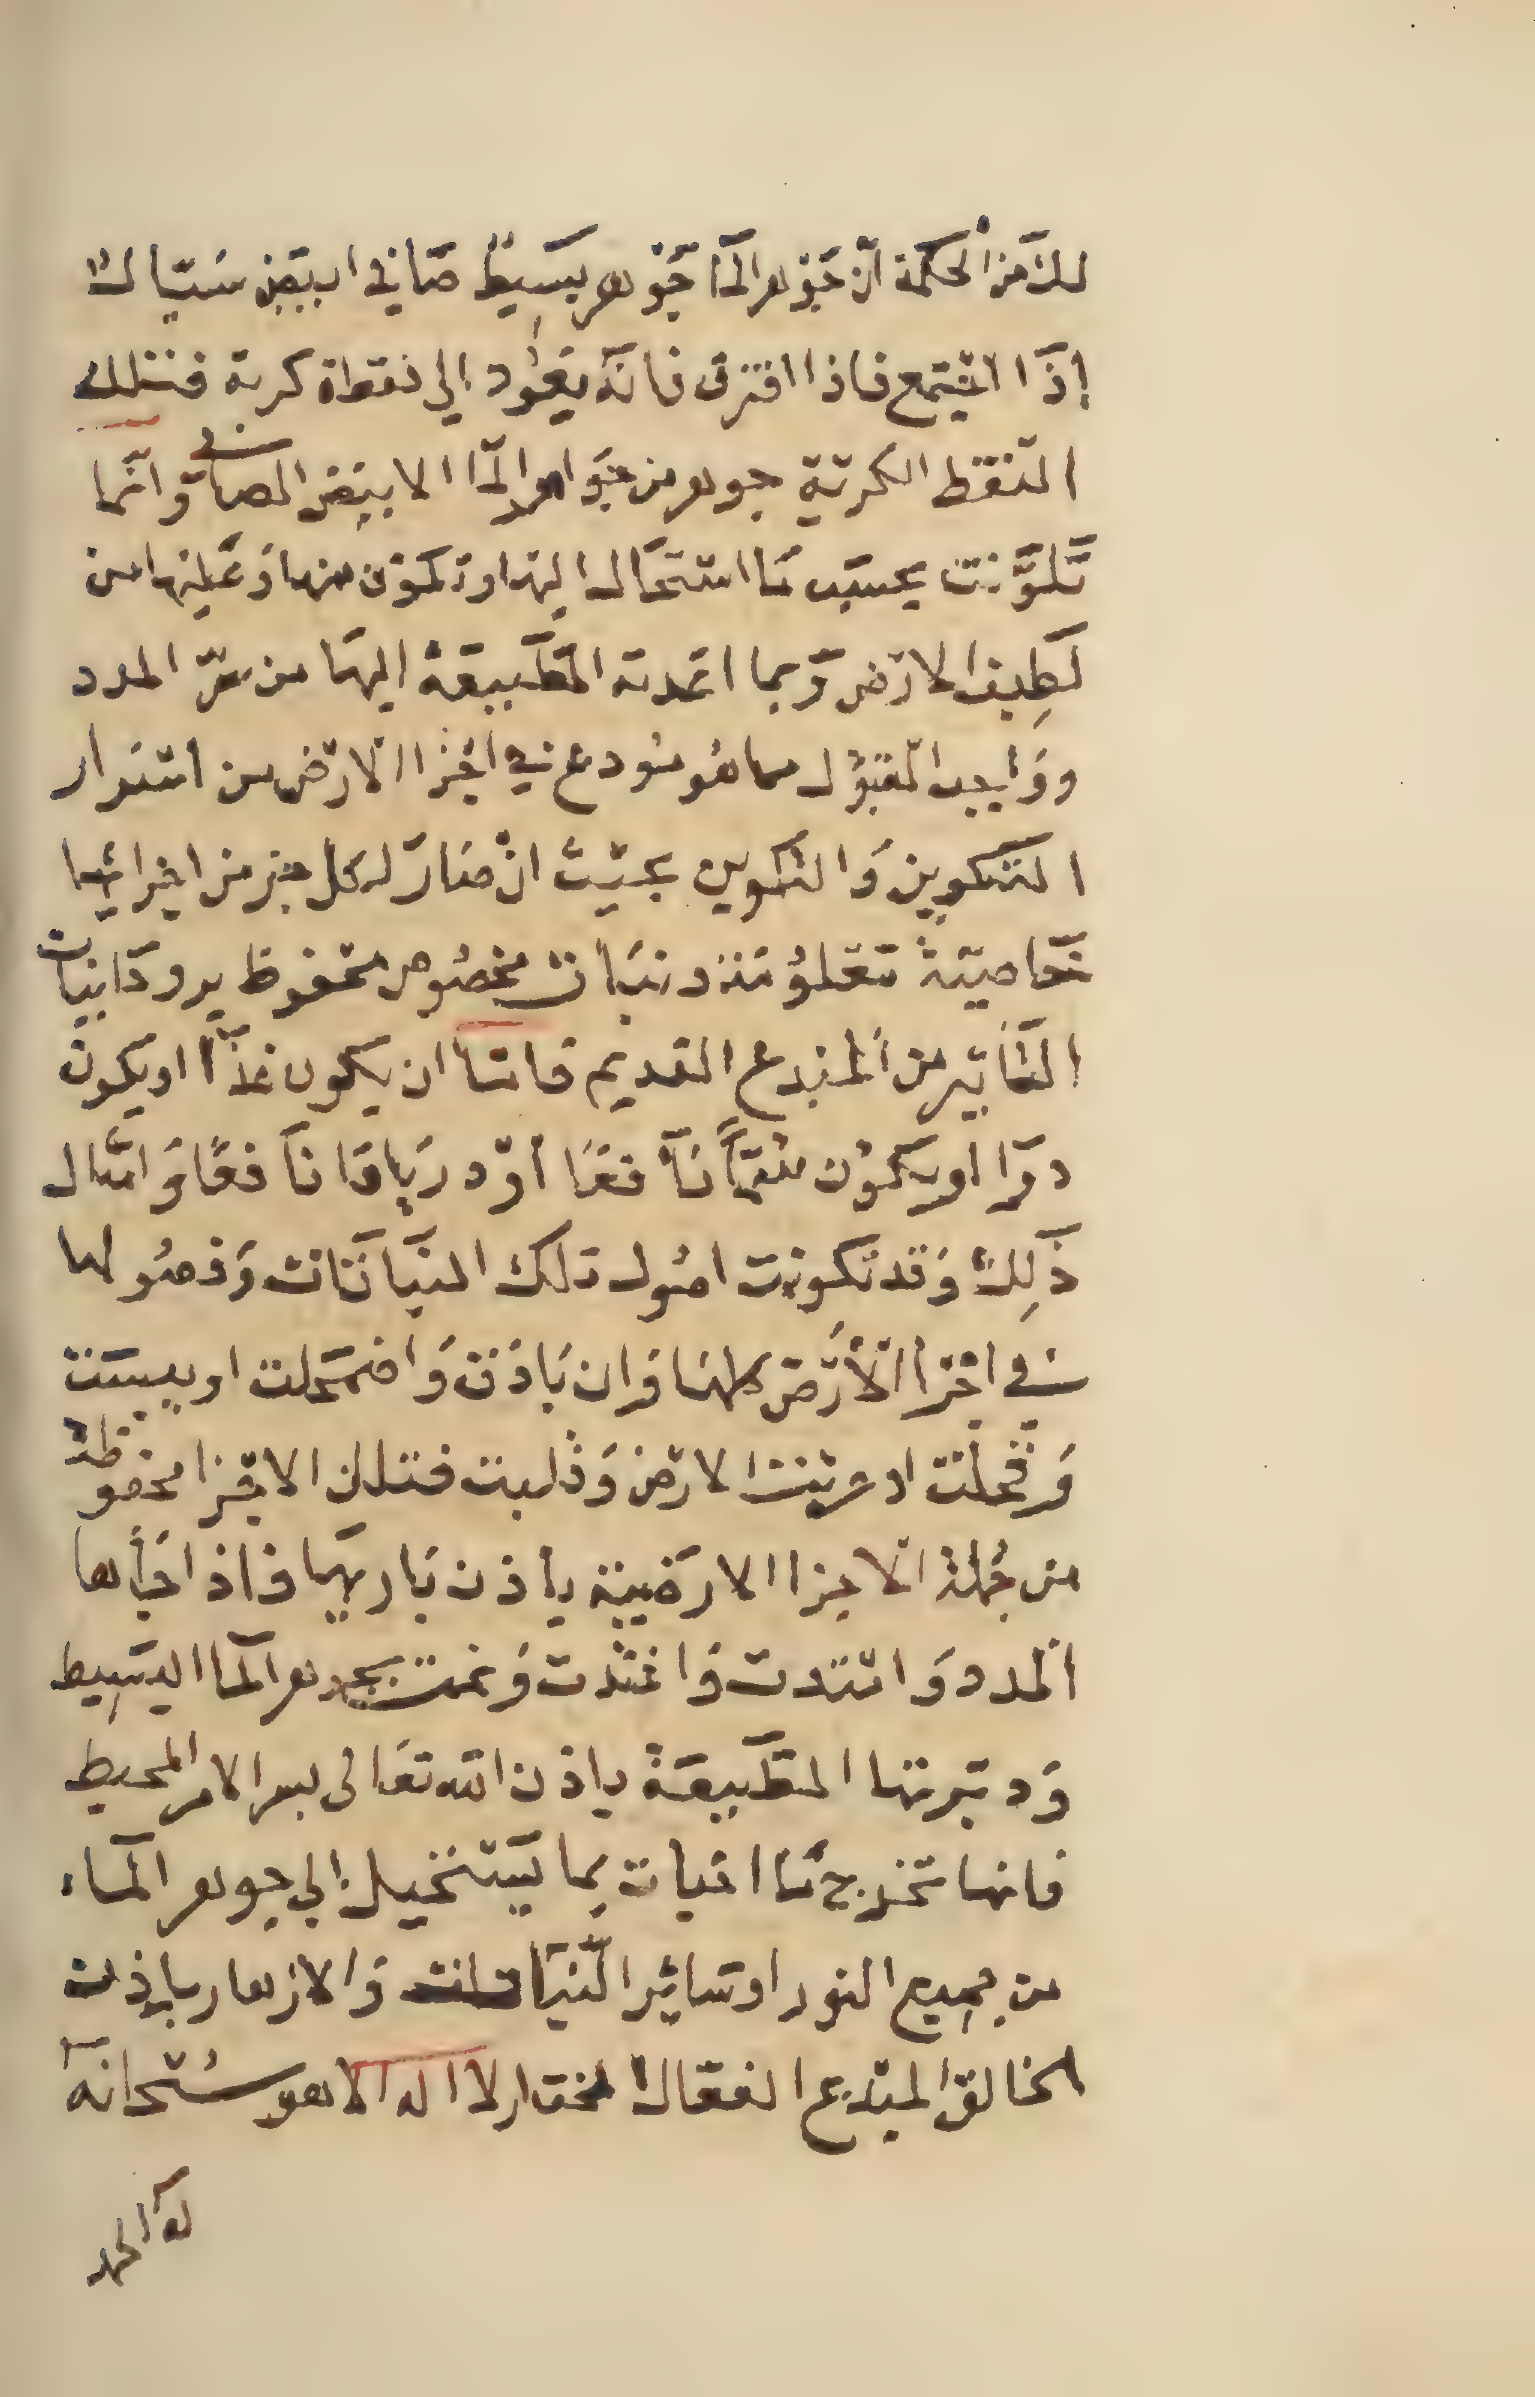 لك من الحكمة ان جوهر الما جوهر بسيط صافي ابيض سيال
إذا اجتمع فاذا افترق فانه يعود الى نقط كرية فتلك
النقط الكرية جوهر من جواهر الما الابيض الصافي وانما
تلونت بحسب ما استحال اليها وتكون منها وعليها من
لطيف الارض وبما امدته الطبيعة اليها من سر المدد
وواجب القبول مما هو مودع في اجزا الارض من اسرار
التكوين والتكوين بحيث ان صار لكل جز من اجزائها
خاصية تعلو منه ونبات مخصوص محفوظ بروحانيات
التأثير من المبدع القديم فاما ان يكون غذاا او يكون
دوا او يكون سما نافعا او درياقا نافعا وامثال
ذلك وقد تكونت اصول تلك النباتات وفصولها
في اجزا الارض كلها فان بادت واضمحلت او يبست
وقحلت او عريت الارض وقلبت فتلك الاجزا محفوظة
من جملة الاجزا الارضية باذن باريها فاذا جاها
المدد وامتدت واغتذت ونمت بجوهر الما البسيط
ودبرتها الطبيعة باذن الله تعالى بسر الامر المحيط
فانها تخرج ما اخبات بما يستحيل الى جوهر الماء
من جميع النور او سائر النباتات والازهار باذن
الخالق المبدع الفعال المختار لا اله الا هو سبحانه
له الحمد